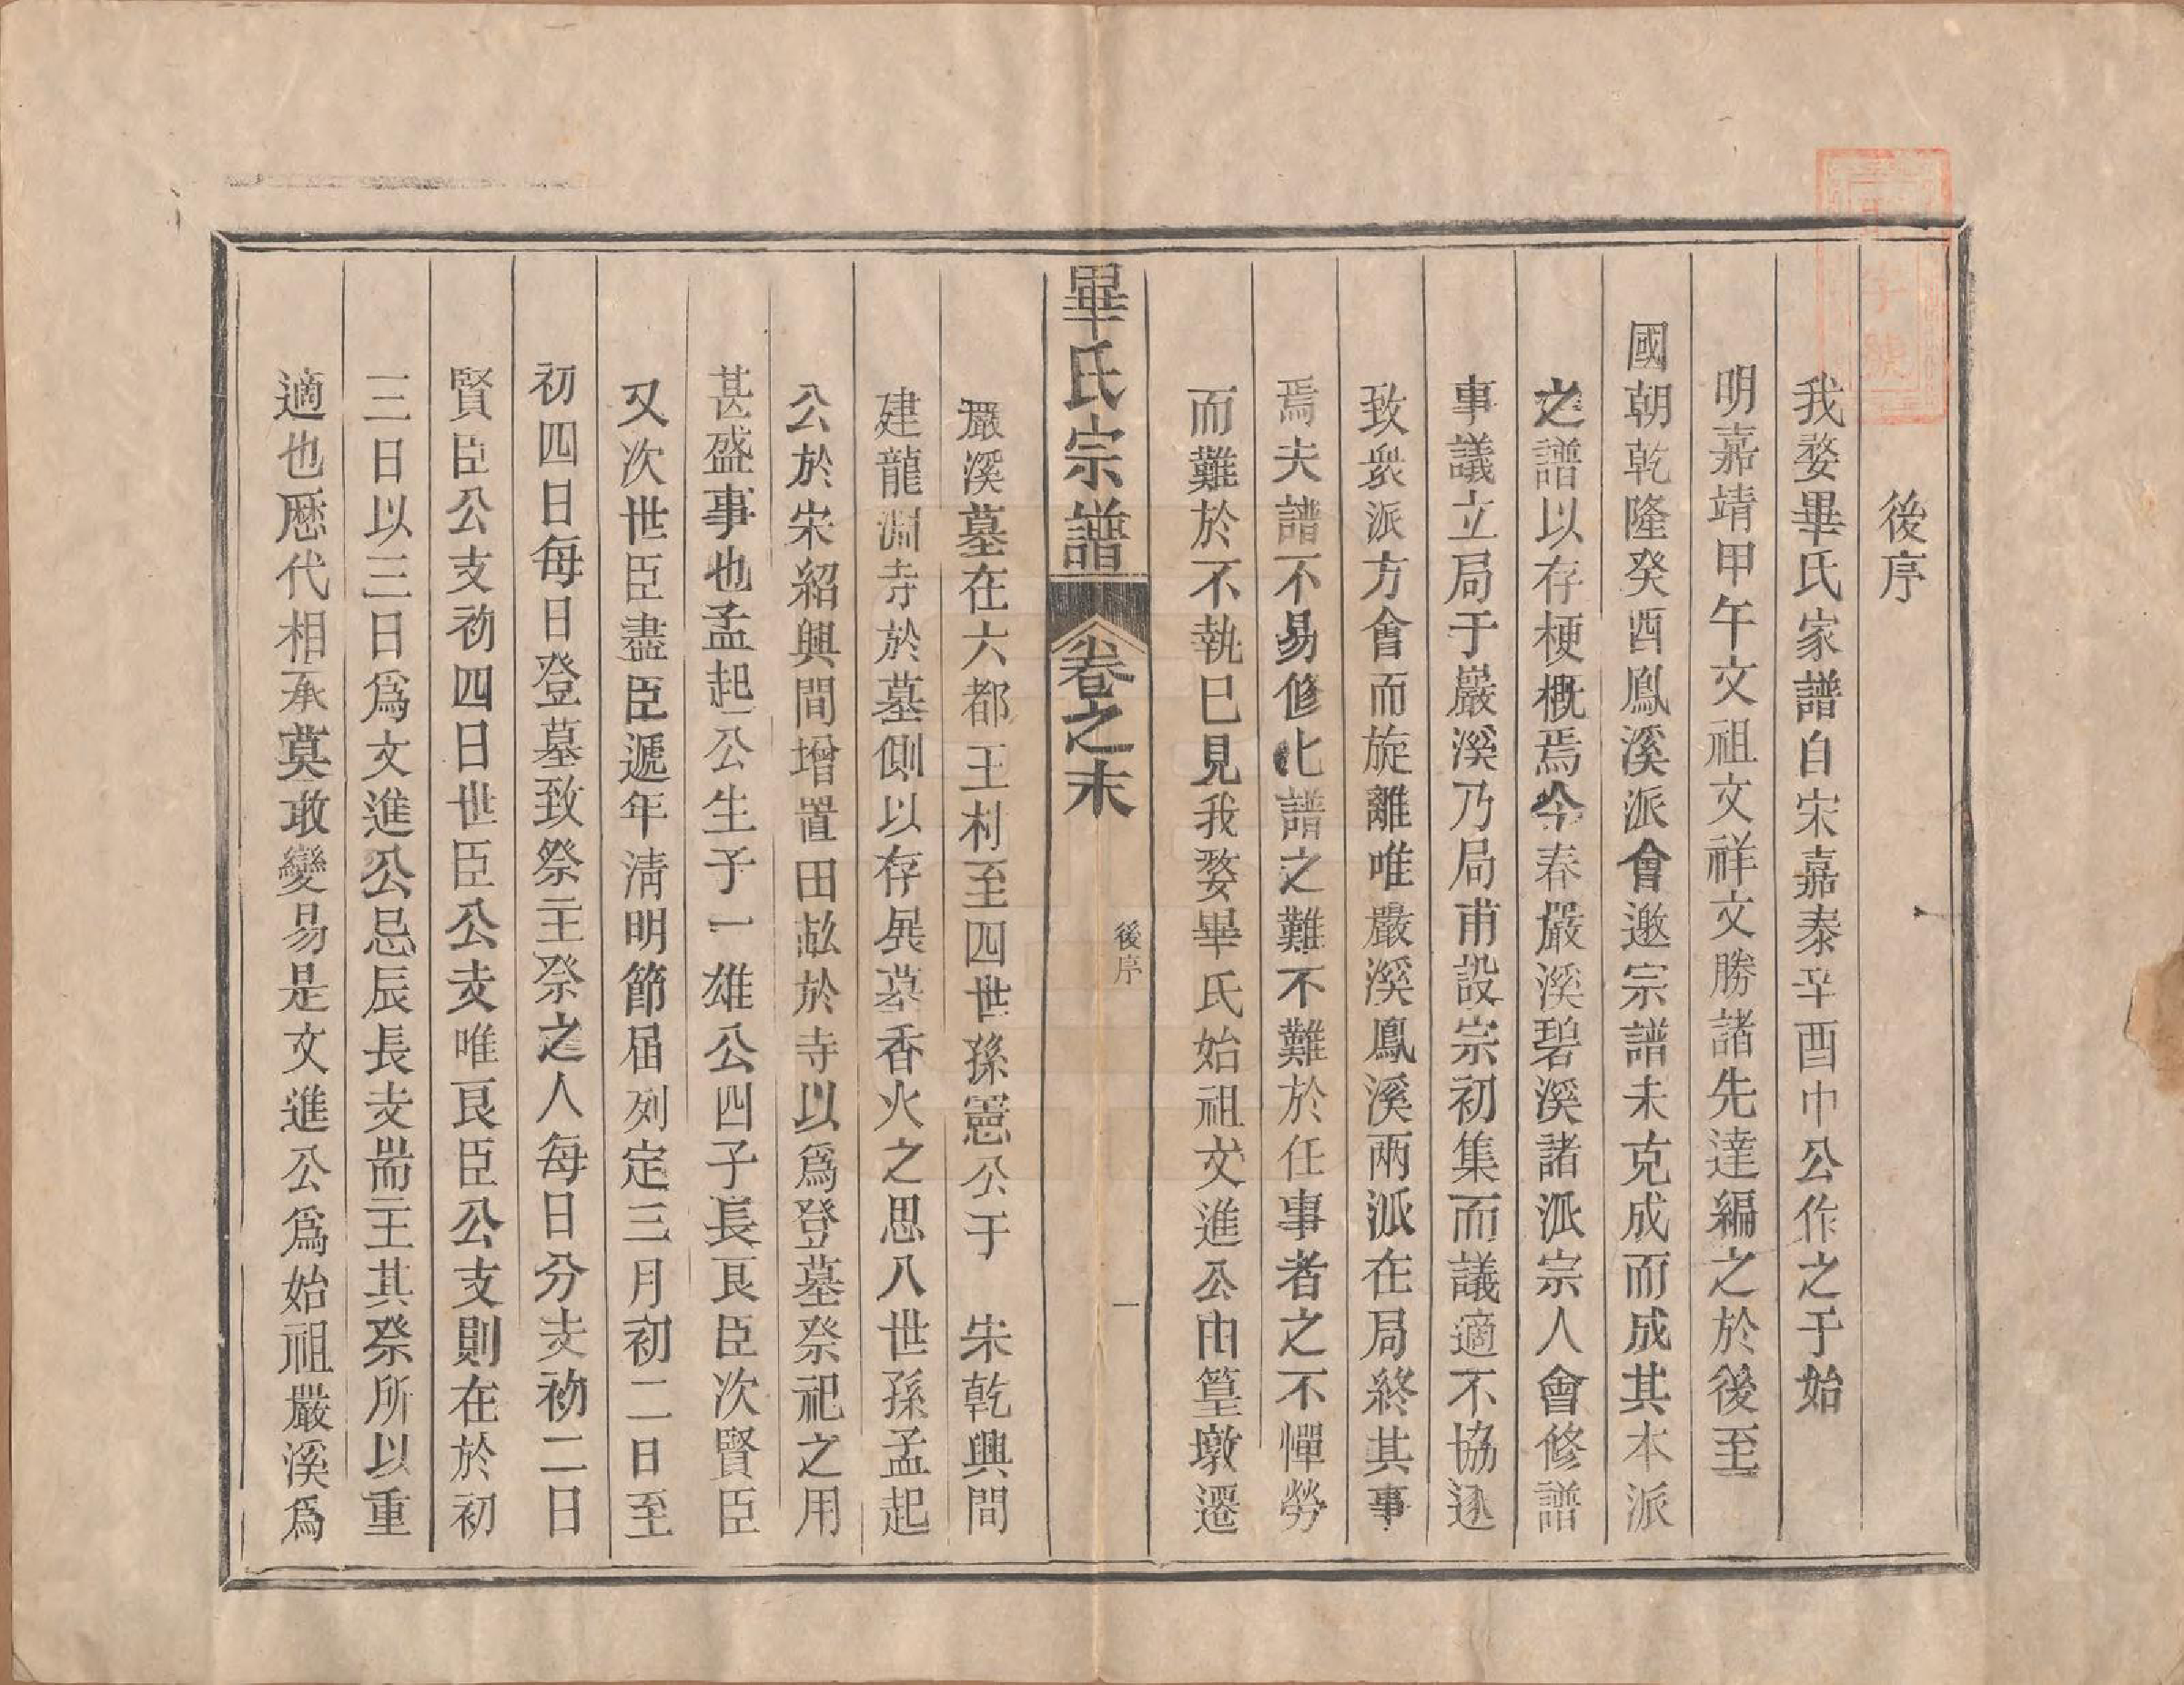 後序
我婺畢氏家譜自宋嘉泰辛酉巾公作之于始
明嘉靖甲午文祖文祥文勝諸先達編之於後至
國朝乾隆癸酉鳳溪派會邀宗譜未克成而成其本派
之譜以存梗概焉今春嚴溪碧溪諸派宗人會修譜
事議立局于嚴溪乃局甫設宗初集而議適不協遂
致衆派方會而旋離唯嚴溪鳳溪兩派在局終其事
焉夫譜不易修此譜之難不難於任事者之不憚勞
而難於不執已見我婺畢氏始祖文進公由篁墩遷
畢氏宗譜
卷之末
後序
一
嚴溪墓在六都王村至四世孫憲公于 宋乾興間
建龍淵寺於墓側以存展墓香火之思八世孫孟起
公於宋紹興間增置田畝於寺以爲登墓祭祀之用
甚盛事也孟起公生子一雄公四子長良臣次賢臣
又次世臣盡臣遞年清明節届列定三月初二日至
初四日每日登墓致祭主祭之人每日分支初二日
賢臣公支初四日世臣公支唯良臣公支則在於初
三日以三日爲文進公忌辰長支耑主其祭所以重
適也歷代相承莫敢變易是文進公爲始祖嚴溪爲